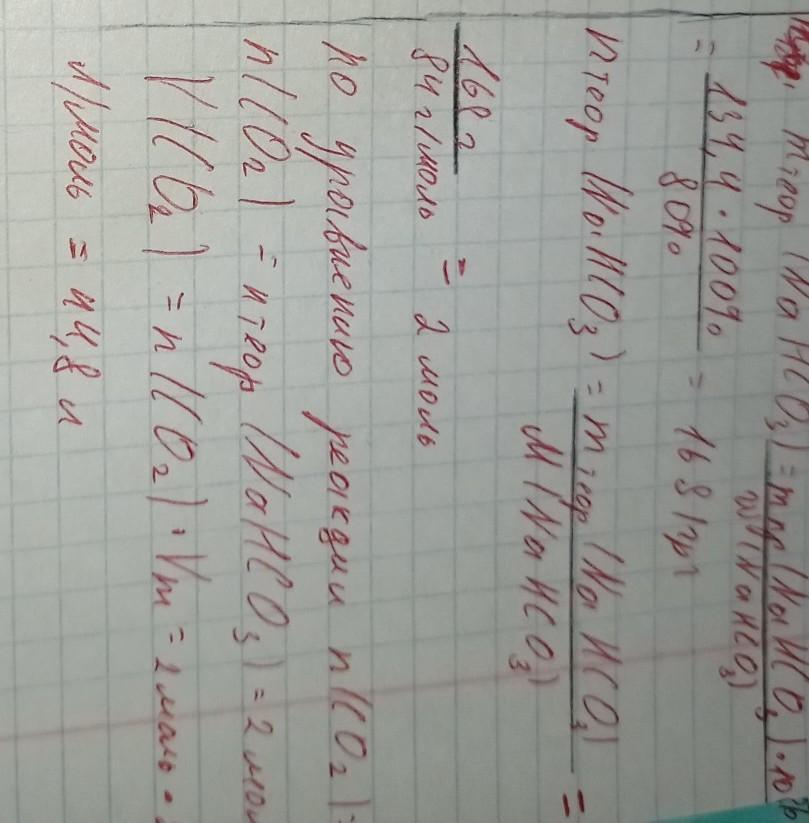 mтеор (NaHCO₃) = mпр (NaHCO₃) · 100%
w (NaHCO₃)
= 134,4 · 100% = 168 гр
80%
nтеор (NaHCO₃) = mтеор (NaHCO₃) =
M (NaHCO₃)
168 г
84 г/моль = 2 моль
по уравнению реакции n(CO₂) =
n(CO₂) = nтеор (NaHCO₃) = 2 мол
V(CO₂) = n(CO₂) · Vm = 2 моль ·
л/моль = 44,8 л